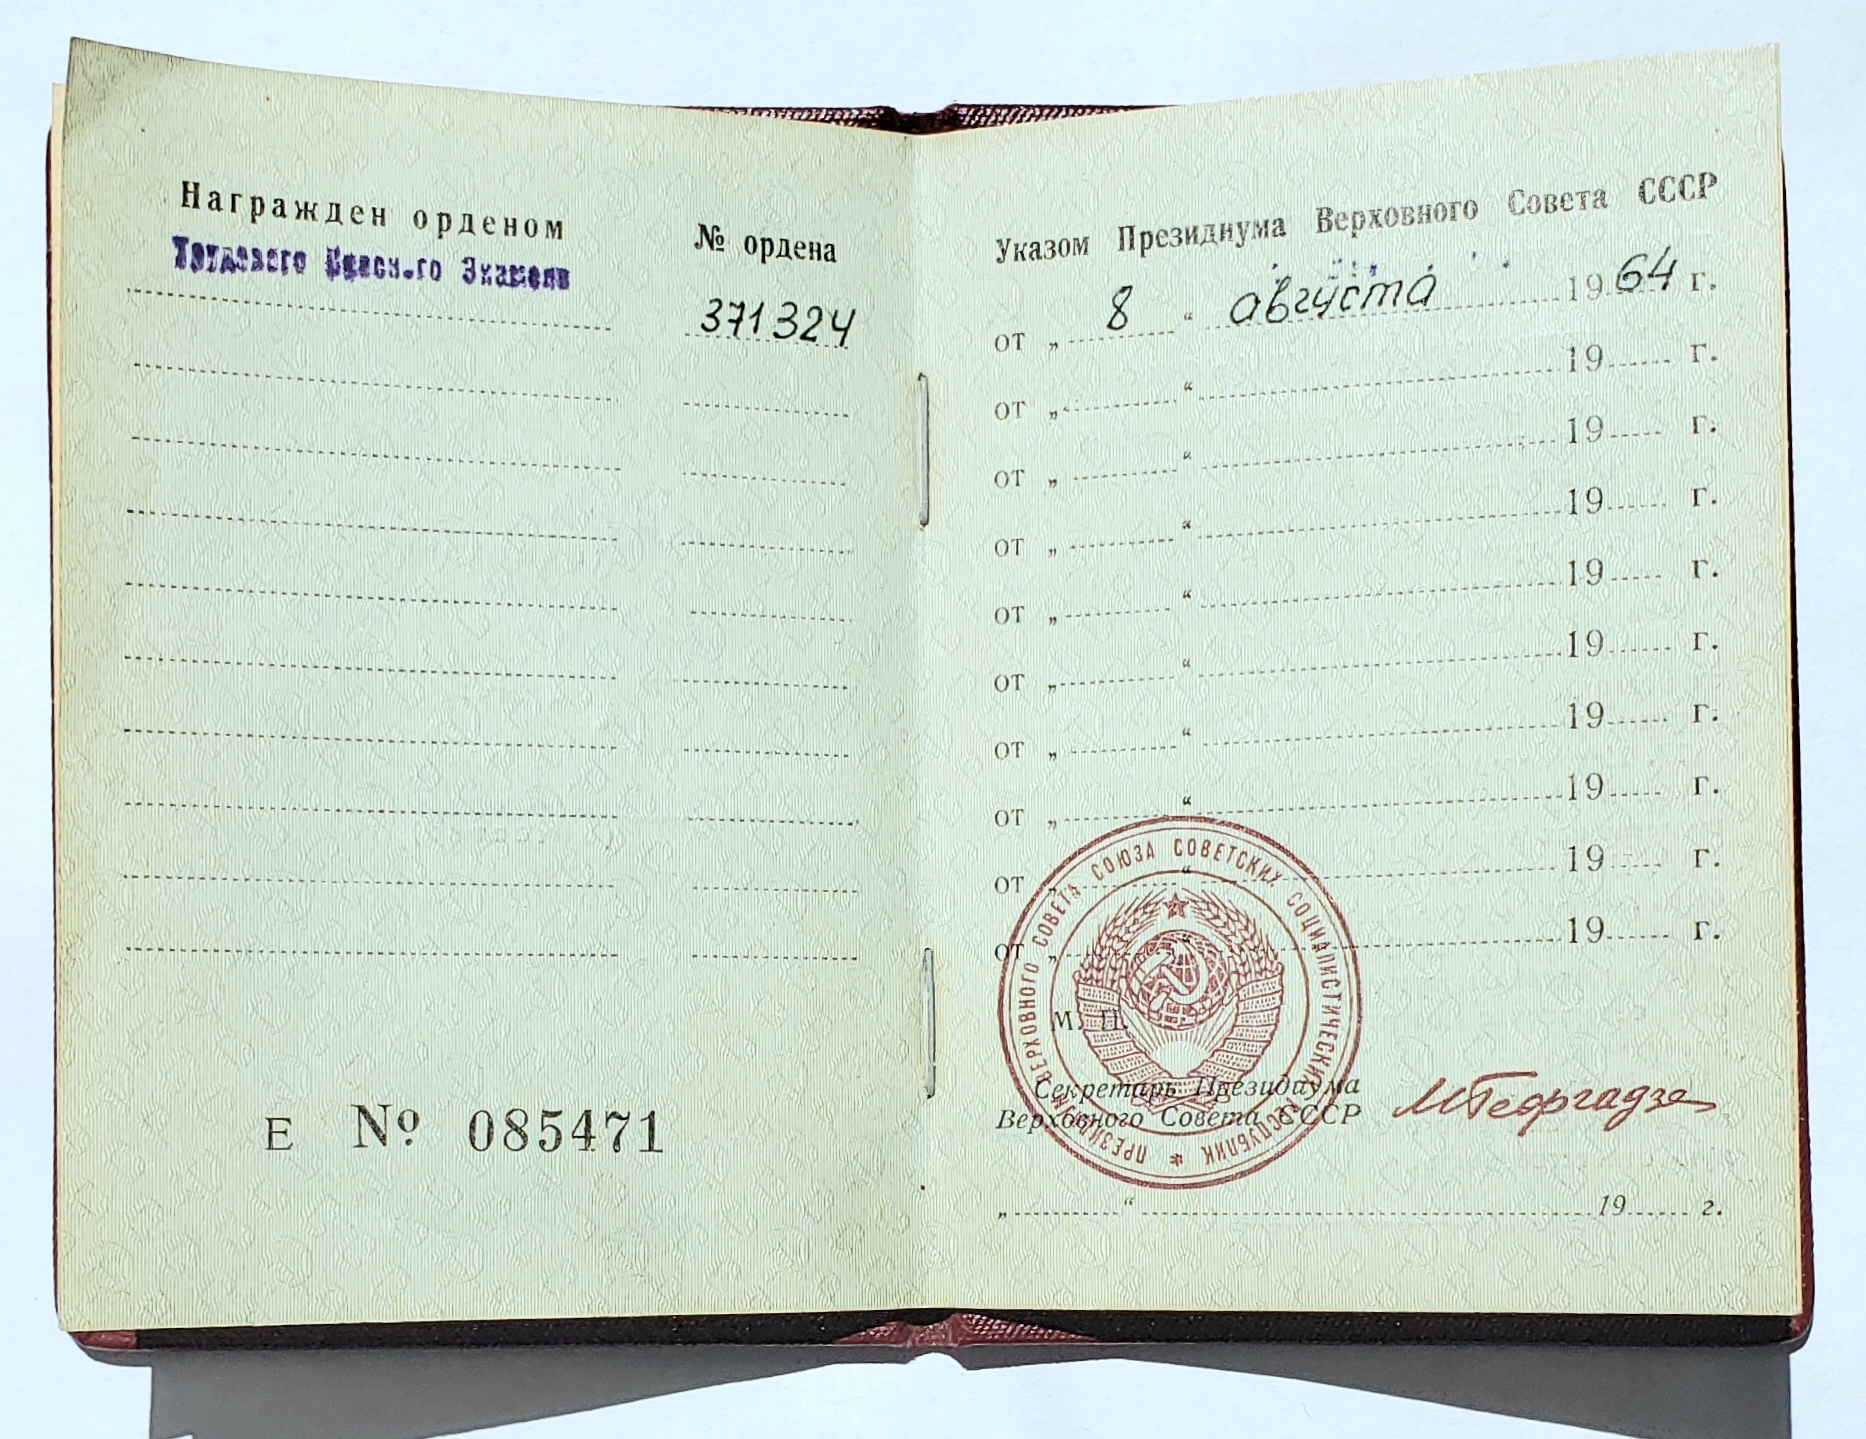 Награжден орденом
Трудового Красного Знамени
№ ордена
371324
Е № 085471
Указом Президиума Верховного Совета СССР
от „ 8 “ августа 1964 г.
от „ “ 19 г.
от „ “ 19 г.
от „ “ 19 г.
от „ “ 19 г.
от „ “ 19 г.
от „ “ 19 г.
от „ “ 19 г.
от „ “ 19 г.
от „ “ 19 г.
ПРЕЗИДИУМ ВЕРХОВНОГО СОВЕТА СОЮЗА СОВЕТСКИХ СОЦИАЛИСТИЧЕСКИХ РЕСПУБЛИК *
М. П.
Секретарь Президиума
Верховного Совета СССР
МГеоргадзе
„ “ 19 г.